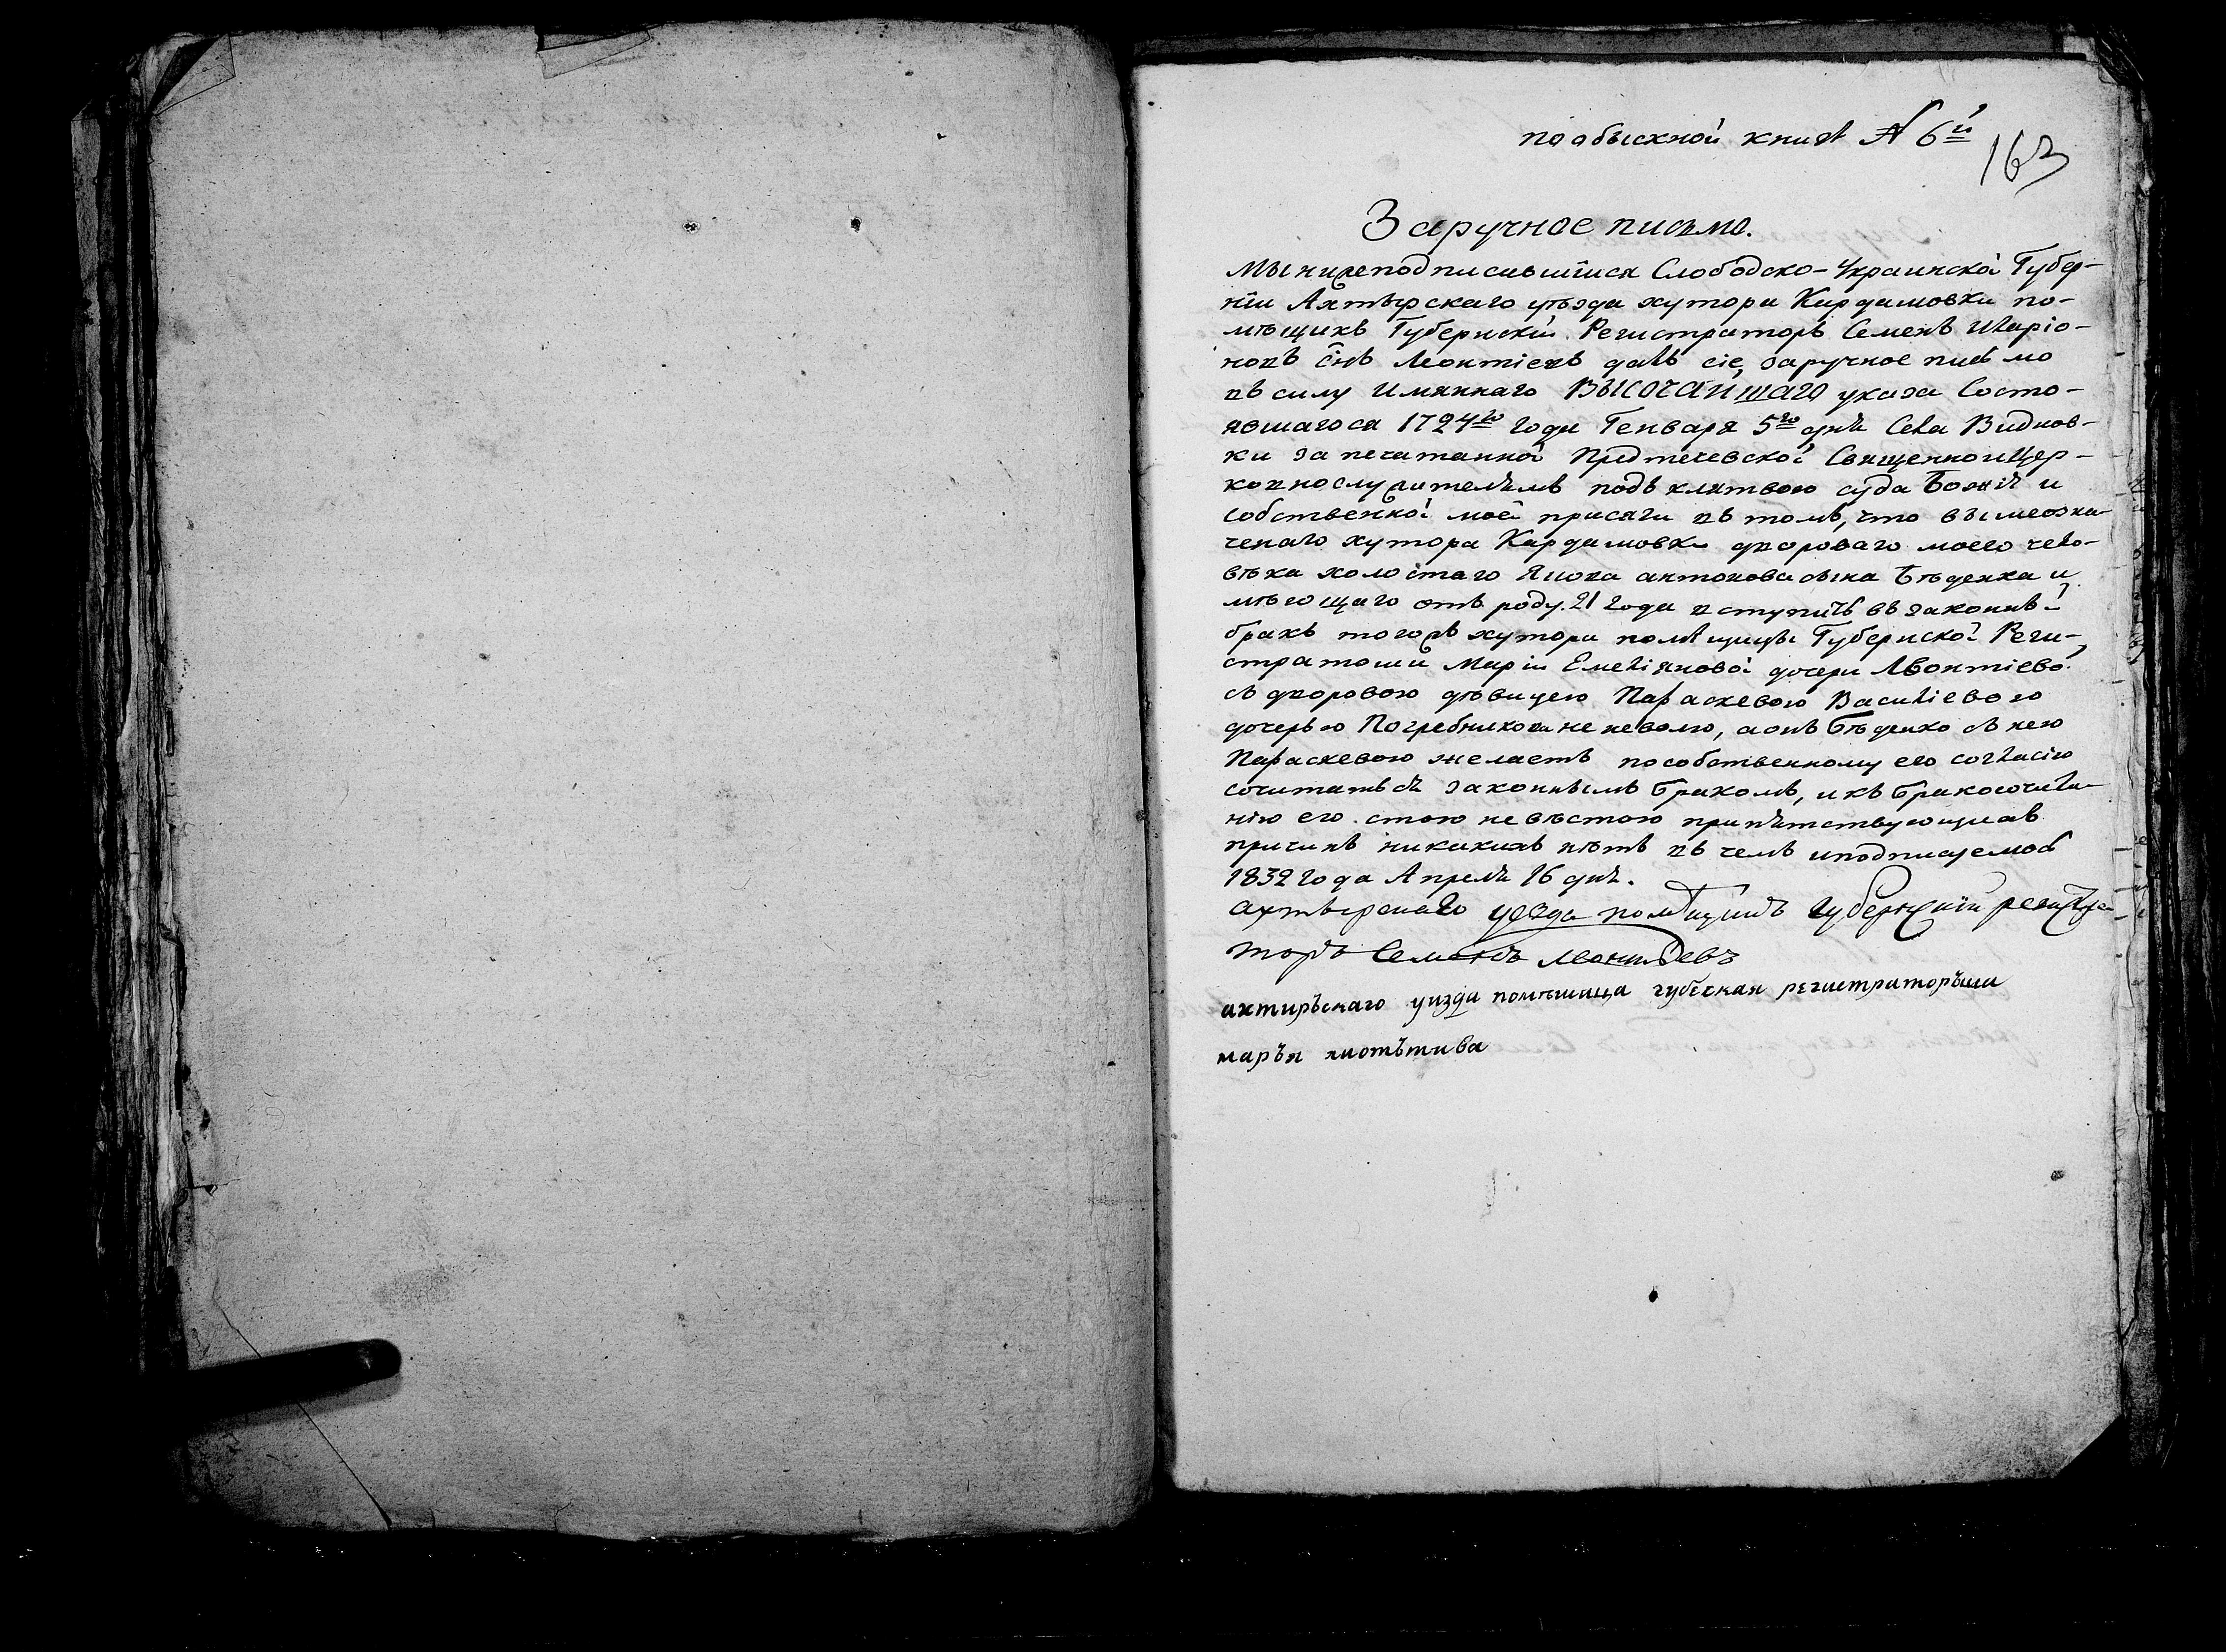 по обыскной книгѣ № 6й
163
Заручное письмо.
Мы нижеподписавшіися Слободско-Украинской Губер-
ніи Ахтырскаго уѣзда хутора Кардашовки по-
мѣщикъ Губернскій Регистраторъ Семенъ Иларіо-
новъ сн҃ъ Леонтіевъ далъ сіе заручное письмо
въ силу Имяннаго ВЫСОЧАЙШАГО указа Состо-
явшагося 1724го года Генваря 5го дня Села Видновки
ки запечатанной Предтечевской Священноицер-
ковнослужителямъ подъ клятвою суда Божія и
собственной моей присяги въ томъ, что вышеозна-
ченаго хутора Кардашовки двороваго моего чело-
вѣка холостаго Якова антонова сына Бѣденка и
мѣющаго отъ роду 21 года вступить въ законный
бракъ тогожъ хутора помѣщицы Губернской Реги-
стратоши Маріи Емеліяновой дочери Леонтіевой
съ дворовою дѣвицею Параскевою Василіевою
дочерью Погребниковане неволю, а онъ Бѣденко съ нею
Параскевою желаетъ пособственному его согласію
сочитаться законнымъ бракомъ, и къ бракосочета-
нію его стою невѣстою припятствующихъ
причинъ никакихъ нѣтъ въ чемъ иподписуемся
1832 года Апреля 16 дня.
ахтырскаго уезда помѣщикъ губернскій регистра
торъ Семенъ Леонтьевъ
ахтиръскаго уизда помѣшица губеская регистраторъши
маръя лиотътива